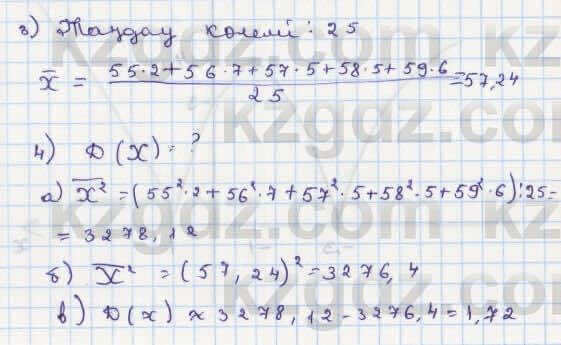 з) Таңдау көлемі: 25
x̄ = (55·2+56·7+57·5+58·5+59·6)/25 = 57,24
4) D(X) = ?
а) x̄² = (55²·2+56²·7+57²·5+58²·5+59²·6):25=
= 3278,12
б) x̄² = (57,24)² = 3276,4
в) D(x) ≈ 3278,12 - 3276,4 = 1,72
kzgdz.com